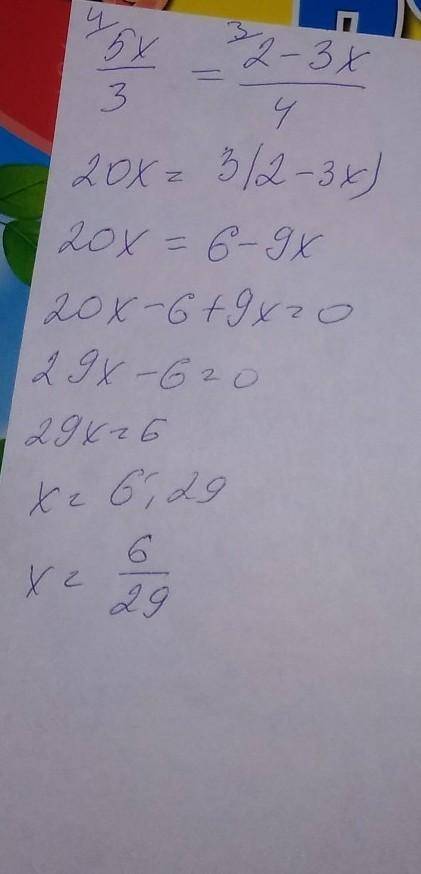 4/ 5x/3 = 3/ 2-3x/4
20x = 3(2-3x)
20x = 6-9x
20x-6+9x=0
29x-6=0
29x=6
x= 6:29
x= 6/29